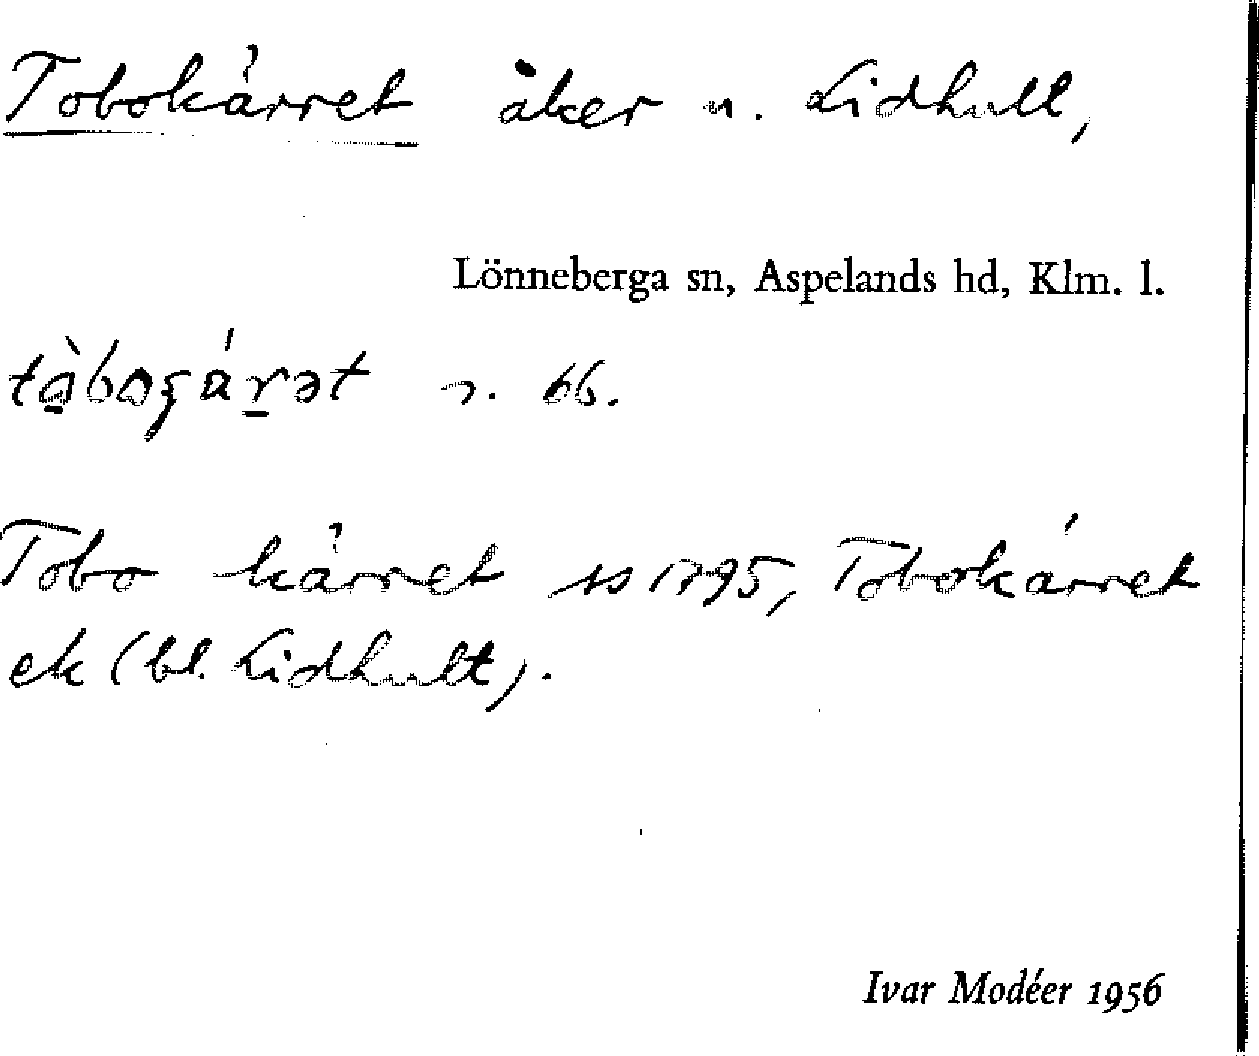 Tobokärret åker u. Lidhult,
Lönneberga sn, Aspelands hd, Klm. l.
n. bb.
Tobo kärret ss 1795, Tobokärret
ek (bl. Lidhult).
Ivar Modéer 1956